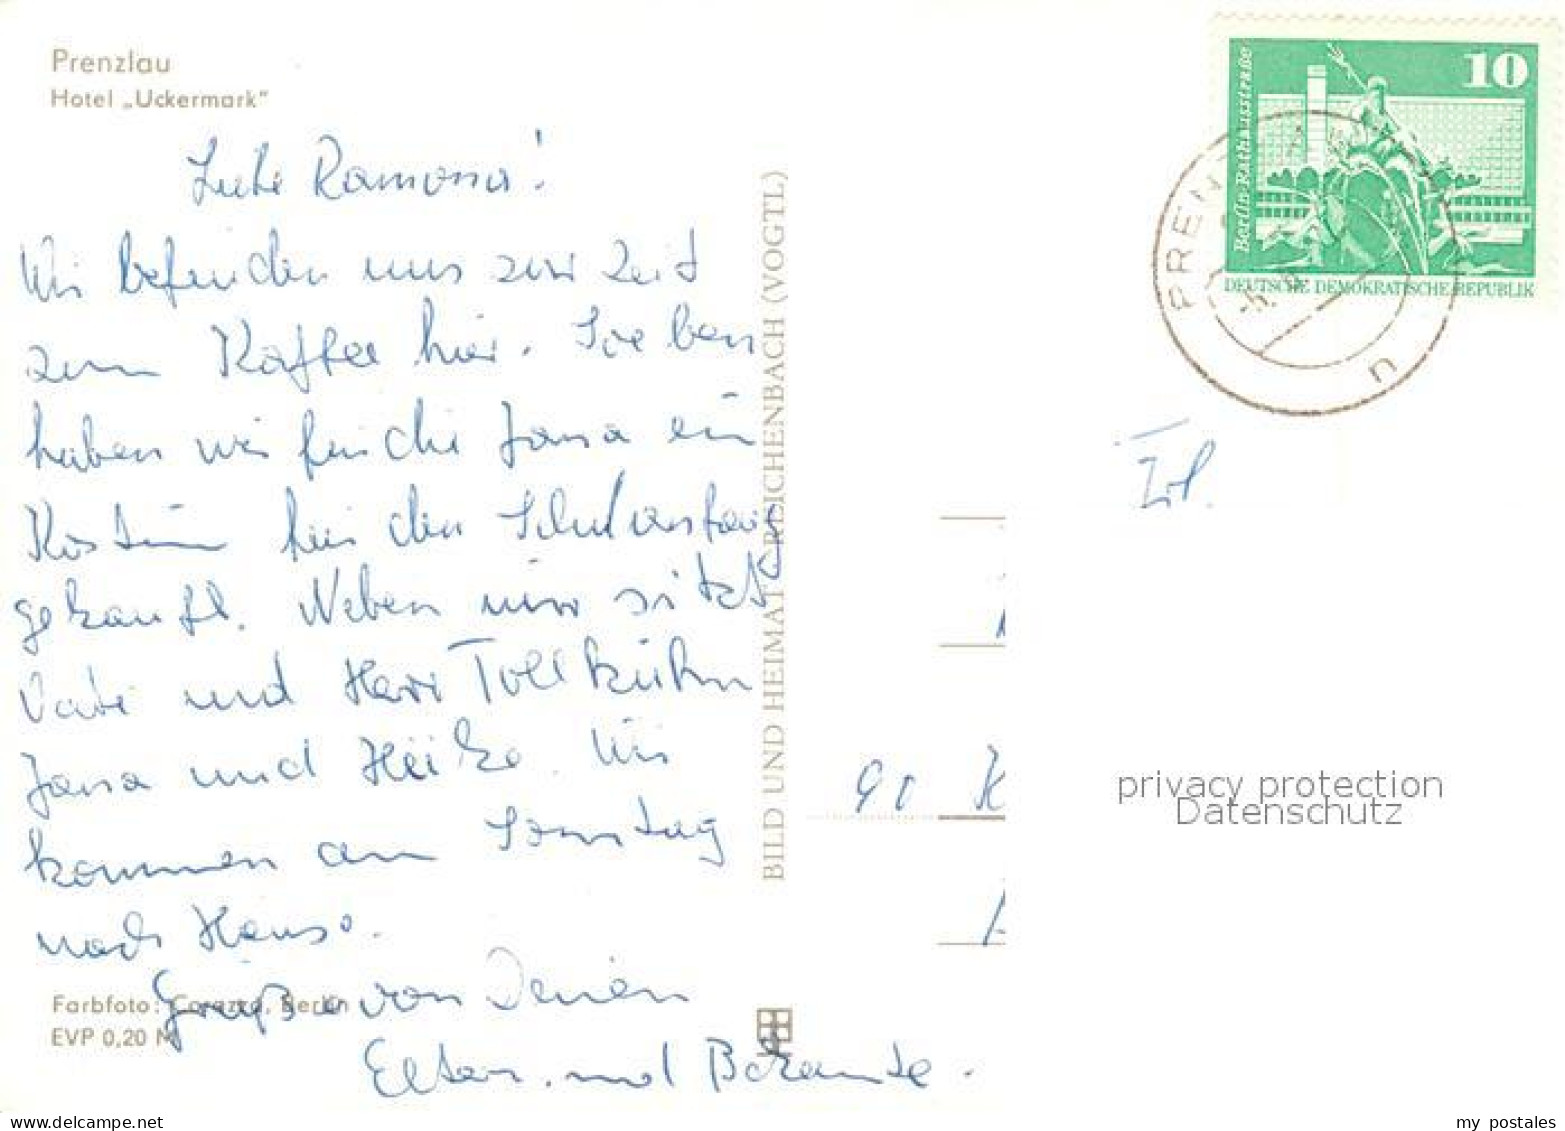 Prenzlau
Hotel „Uckermark"
Liebe Ramona!
Wir befinden uns zur Zeit
zum Kaffee hier. Soeben
haben wir für die Jana ein
Kostüm für den Schulanfang
gekauft. Neben mir sitzt
Vati und Herr Tollkühn
Jana und Heike. Wir
kommen am Sonntag
nach Hause.
Grüße von Deinen
Eltern und Bekannte.
Farbfoto: Corazza, Berlin
EVP 0,20 M
BILD UND HEIMAT REICHENBACH (VOGTL)
10
Berlin-Rathausstraße
DEUTSCHE DEMOKRATISCHE REPUBLIK
PREN
n
Frl.
90
privacy protection
Datenschutz
my postales